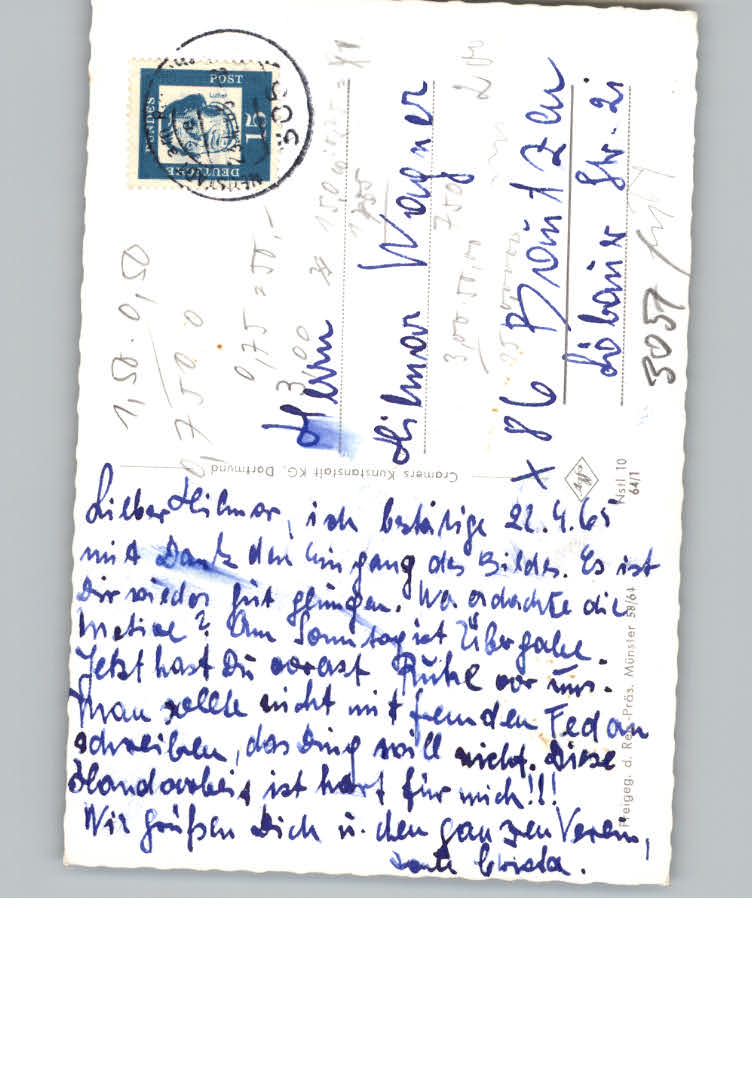 Lieber Hilmar, ich bestätige 22.4.65
mit Dank den Eingang des Bildes. Es ist
Dir wieder gut gelungen. Wer erdachte die
Motive? Am Sonntag ist Übergabe.
Jetzt hast Du vorerst Ruhe vor uns.
Man sollte nicht mit fremden Federn
schreiben, das Ding will nicht. Diese
Handarbeit ist hart für mich!!!
Wir grüßen Dich u. den ganzen Verein,
Tante Christa.
Herrn
Hilmar Wagner
X 86 Bautzen
Löbauer Str. 21
DEUTSCHE
BUNDES
POST
15
Luther
505
Cramers Kunstanstalt KG, Dortmund
Nstl 10
64/1
Freigeg. d. Reg.-Präs. Münster 58/64
1,50 . 0,50
0,750 0
0,75 = 50,-
3,00
750
200
3057